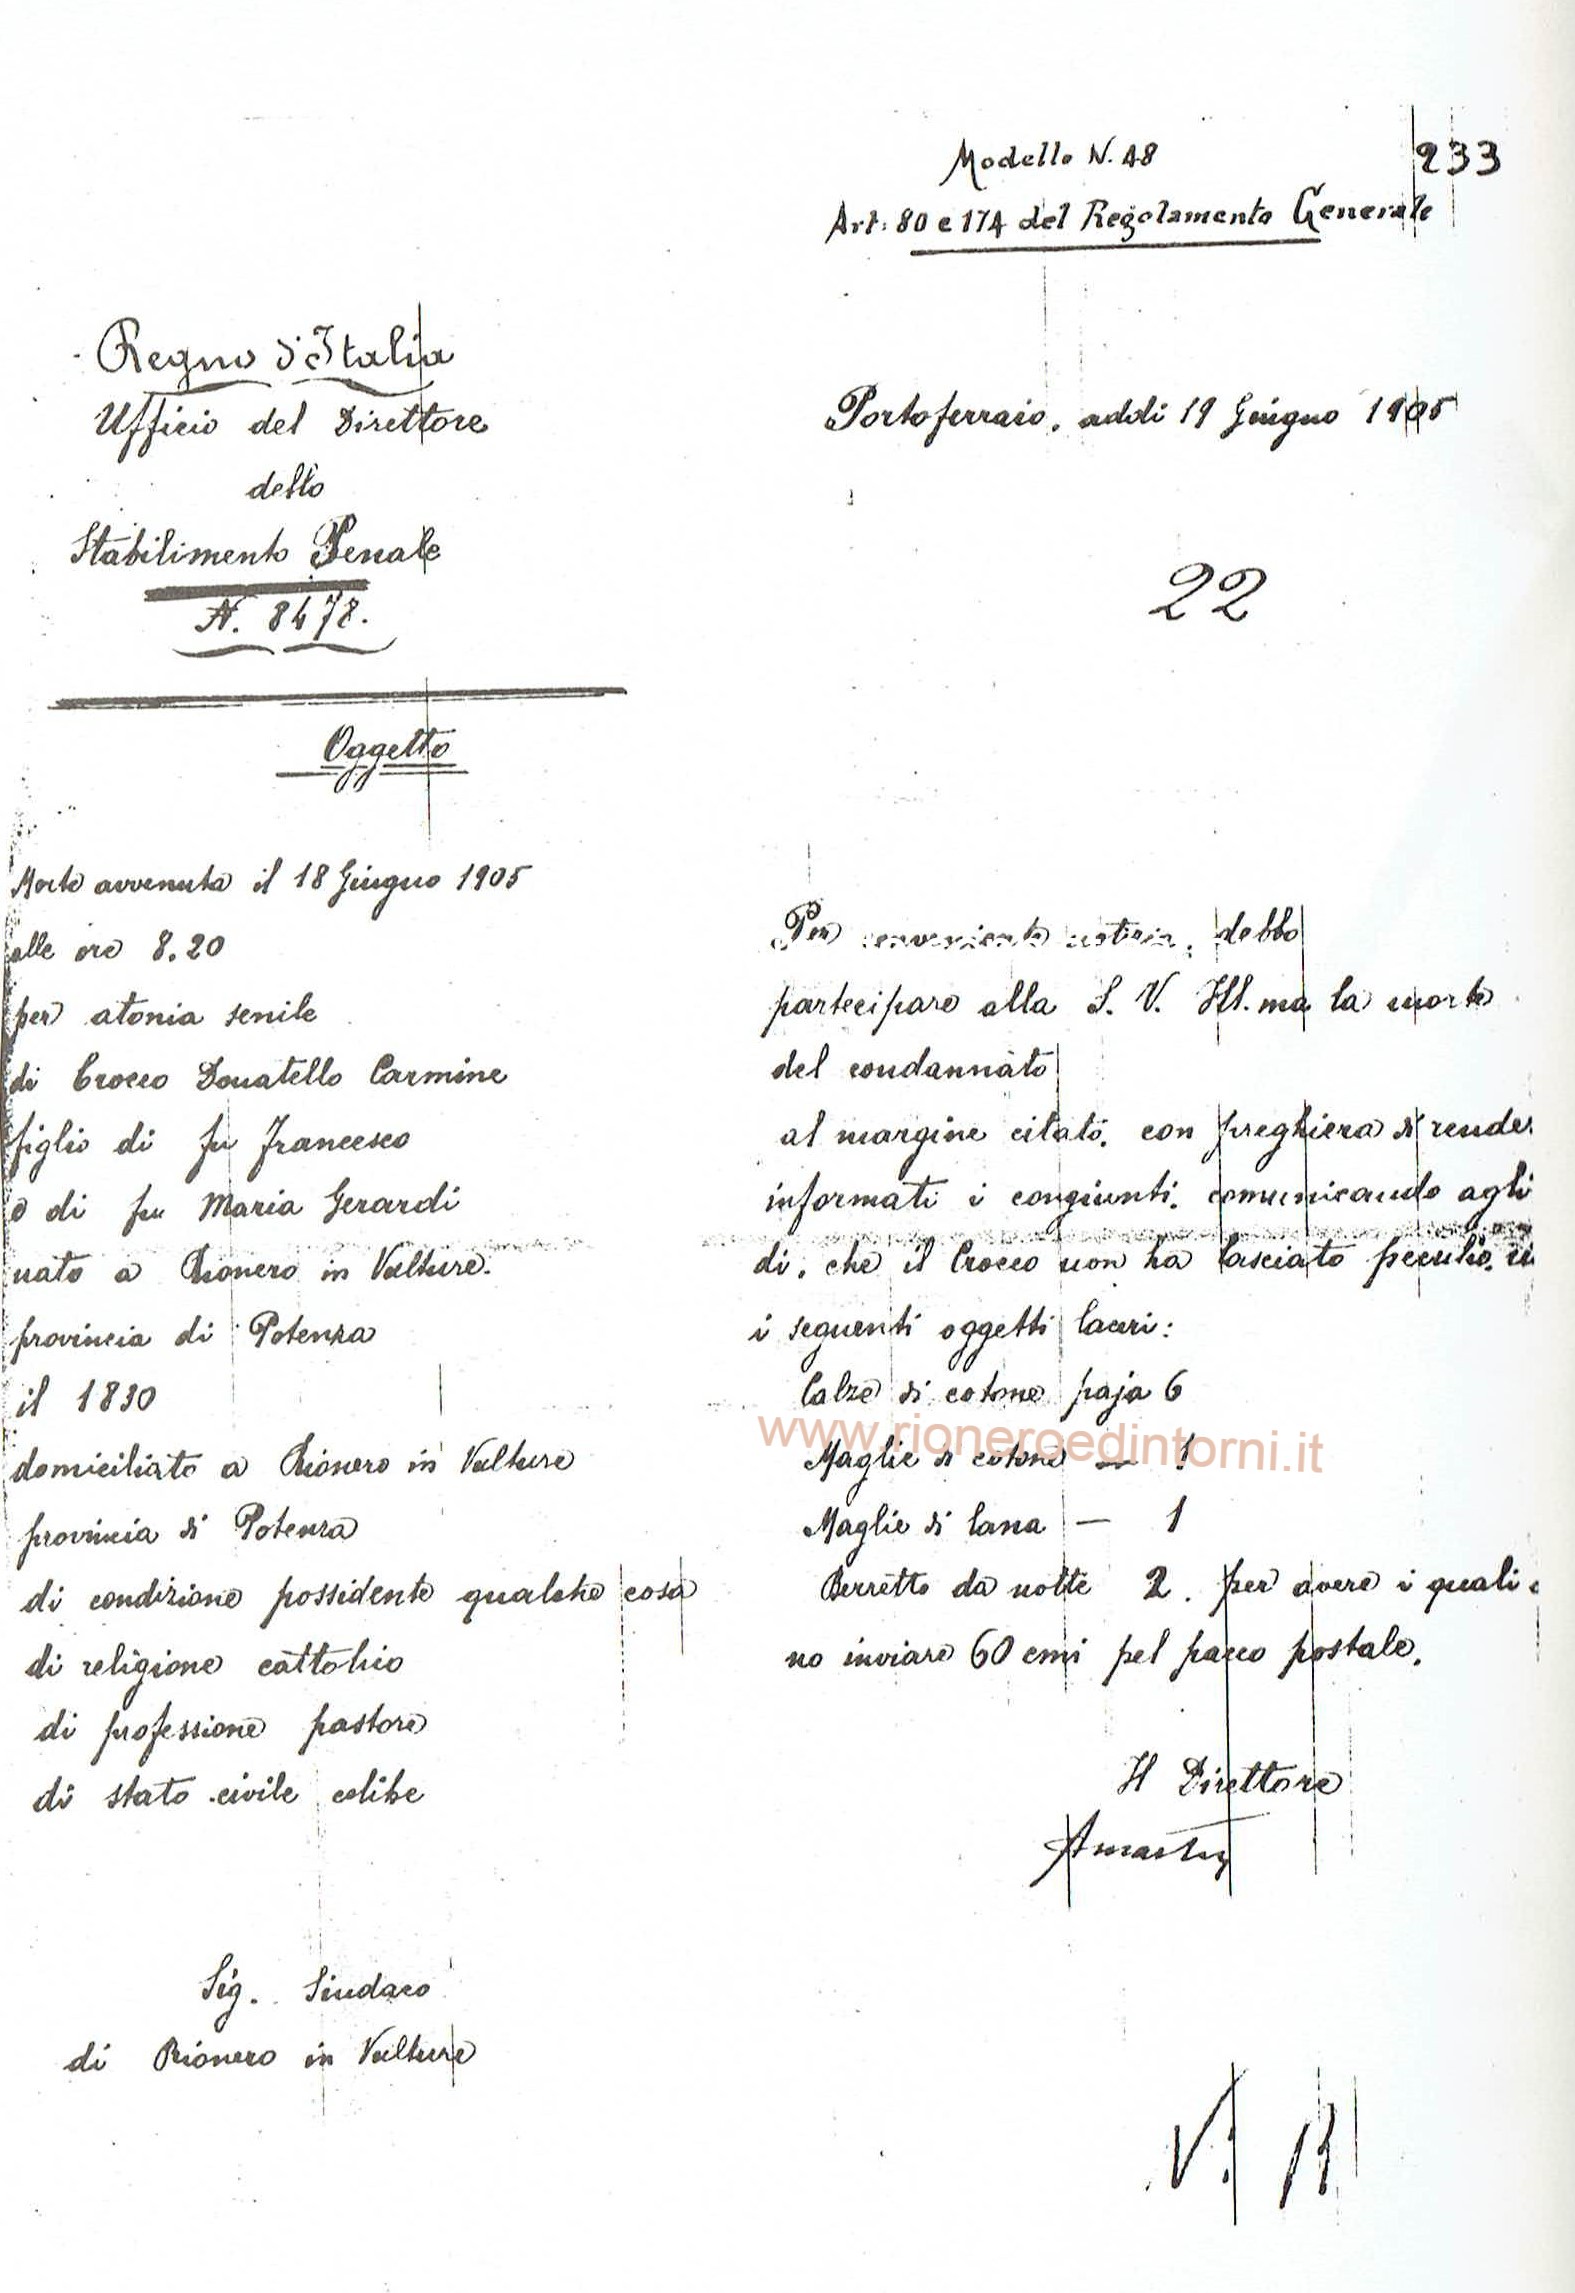 Modello N. 48
233
Art: 80 e 174 del Regolamento Generale
Regno d'Italia
Ufficio del Direttore
dello
Stabilimento Penale
N. 8478.
Portoferraio, addì 19 Giugno 1905
22
Oggetto
Morte avvenuta il 18 Giugno 1905
alle ore 8.20
per atonia senile
di Crocco Donatello Carmine
figlio di fu Francesco
e di fu Maria Gerardi
nato a Rionero in Vulture.
provincia di Potenza
il 1830
domiciliato a Rionero in Vulture
provincia di Potenza
di condizione possidente qualche cosa
di religione cattolico
di professione pastore
di stato civile celibe
Sig. Sindaco
di Rionero in Vulture
Per conveniente notizia, debbo
partecipare alla S. V. Ill.ma la morte
del condannato
al margine citato, con preghiera di render
informati i congiunti, comunicando agli
di, che il Crocco non ha lasciato peculio,
i seguenti oggetti laceri:
Calze di cotone paja 6
Maglie di cotone — 1
Maglie di lana — 1
Berretto da notte 2. per avere i quali
no inviare 60 cmi pel pacco postale.
Il Direttore
www.rioneroedintorni.it